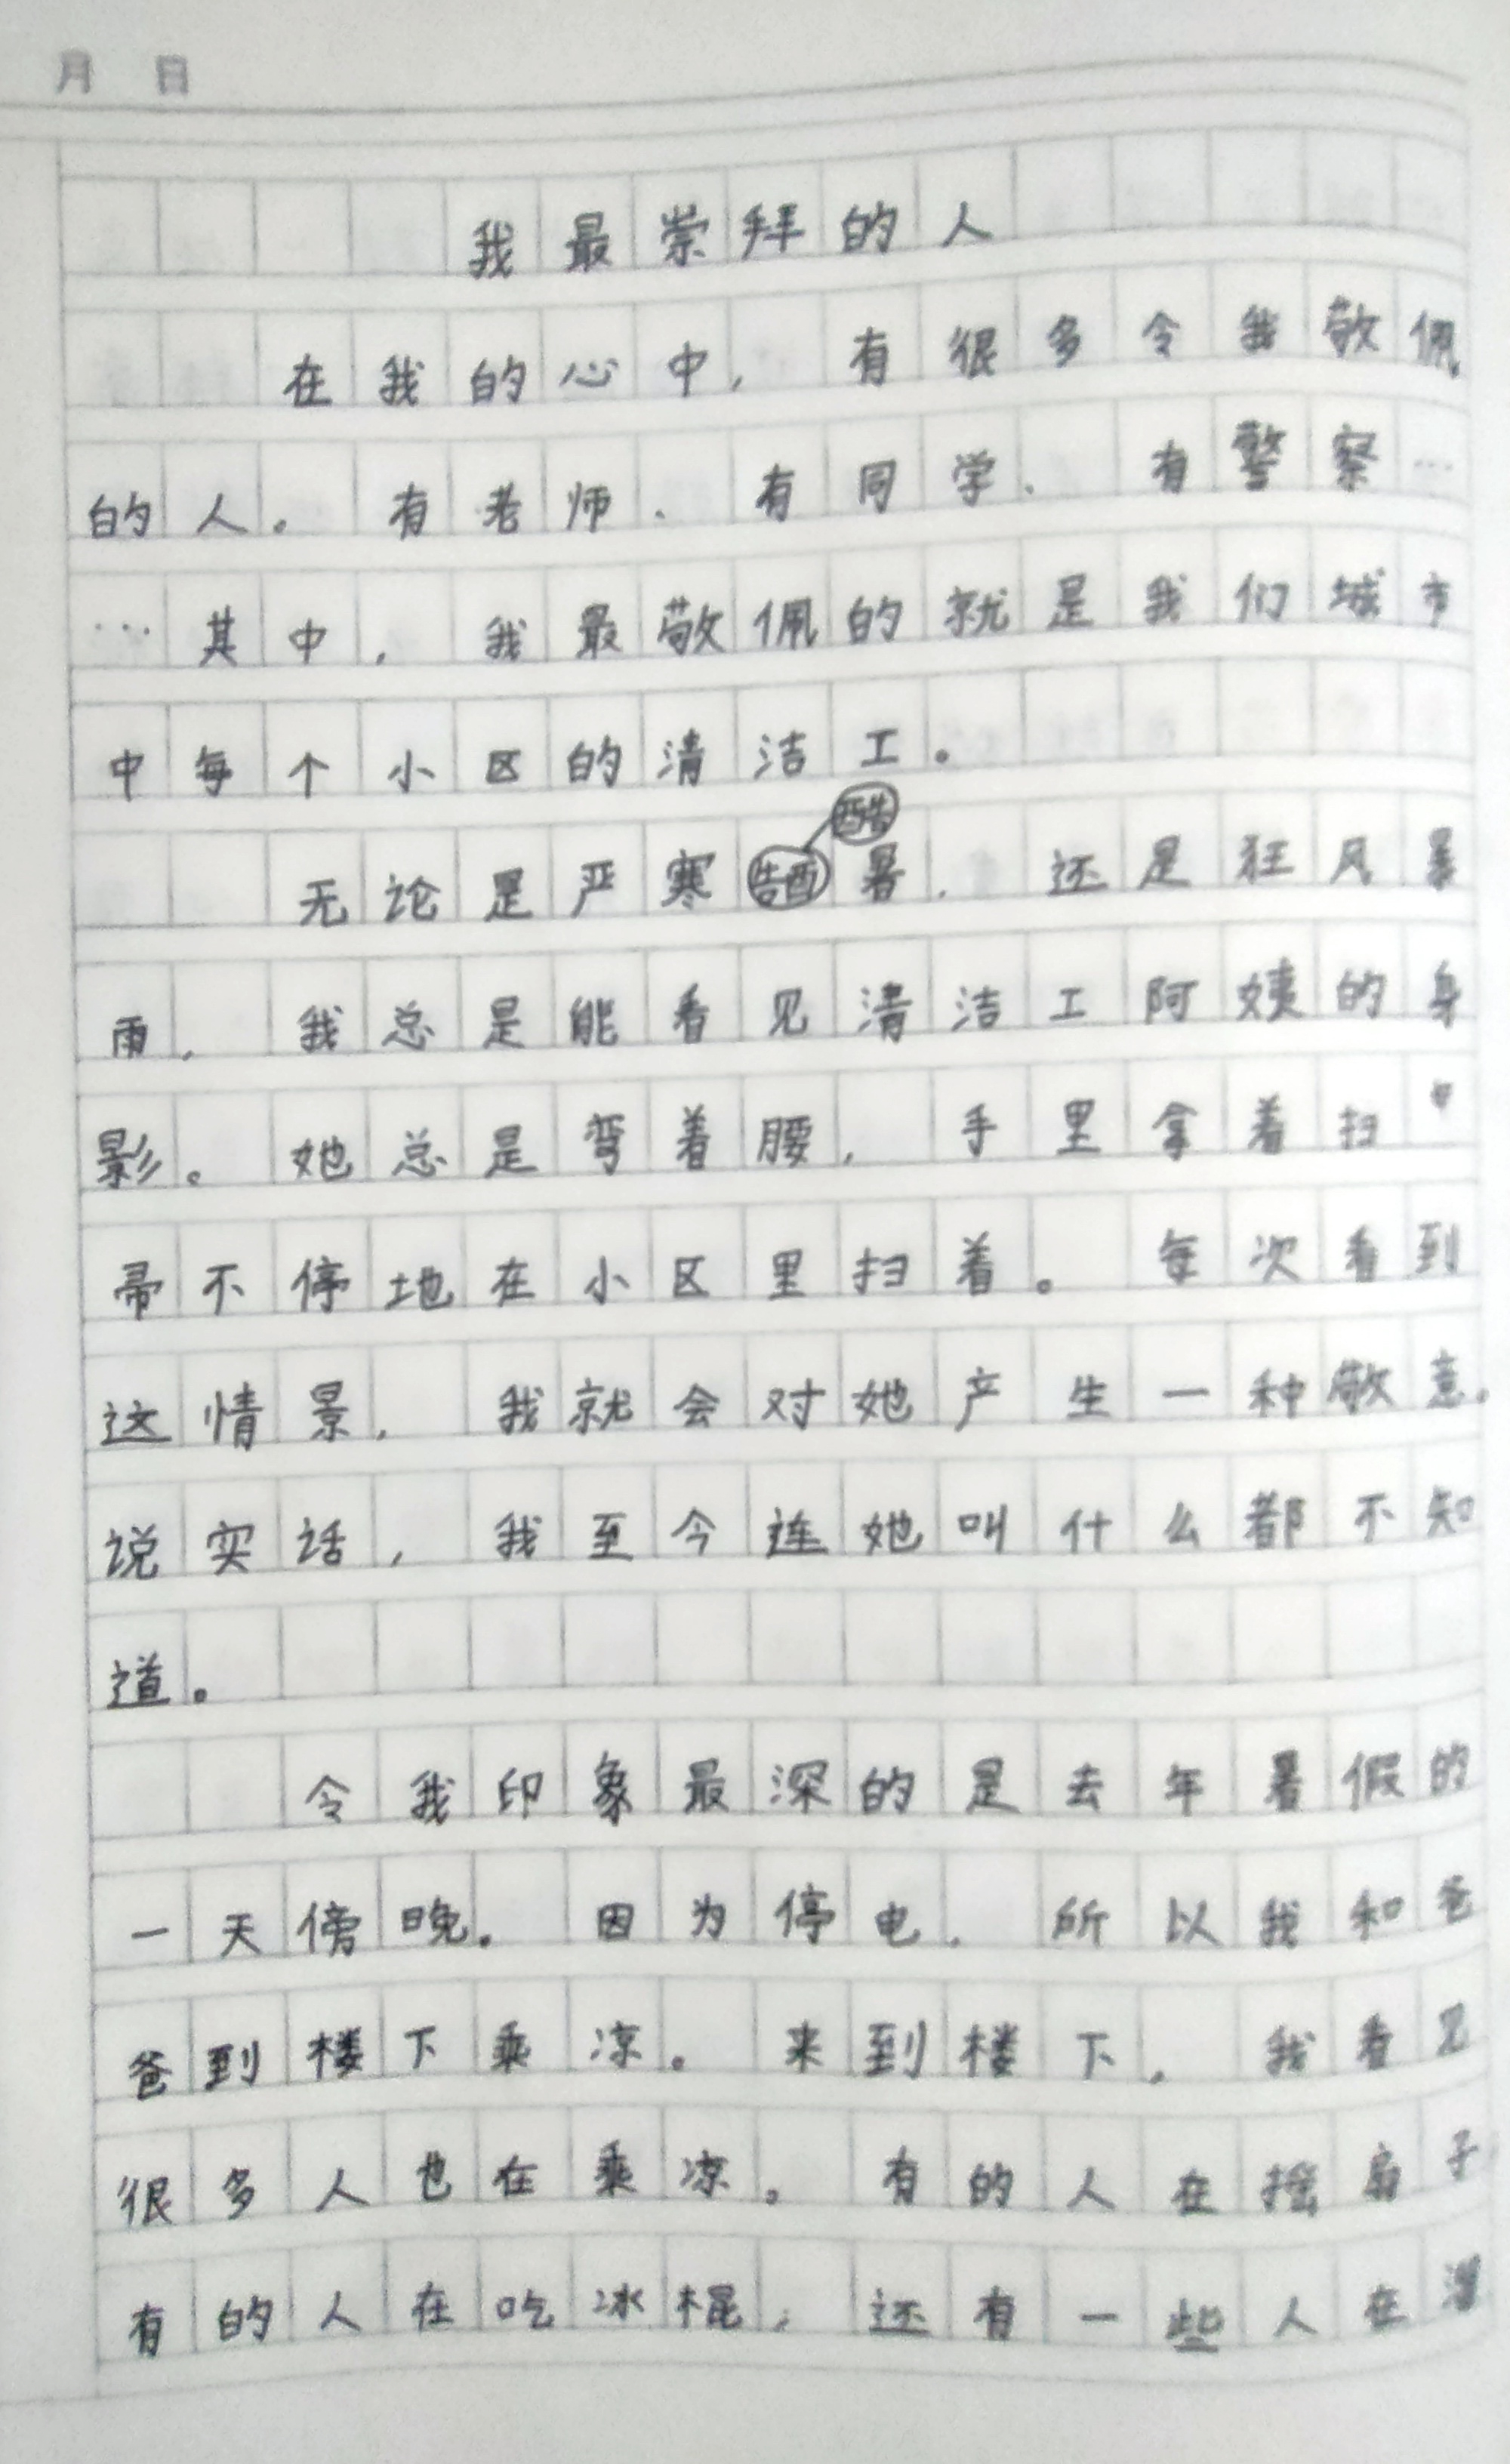 月 日
我最崇拜的人
在我的心中，有很多令我敬佩
的人。有老师、有同学、有警察…
…其中，我最敬佩的就是我们城市
中每个小区的清洁工。
无论是严寒酷暑，还是狂风暴
雨，我总是能看见清洁工阿姨的身
影。她总是弯着腰，手里拿着扫
帚不停地在小区里扫着。每次看到
这情景，我就会对她产生一种敬意。
说实话，我至今连她叫什么都不知
道。
令我印象最深的是去年暑假的
一天傍晚。因为停电，所以我和爸
爸到楼下乘凉。来到楼下，我看见
很多人也在乘凉。有的人在摇扇子
有的人在吃冰棍；还有一些人在